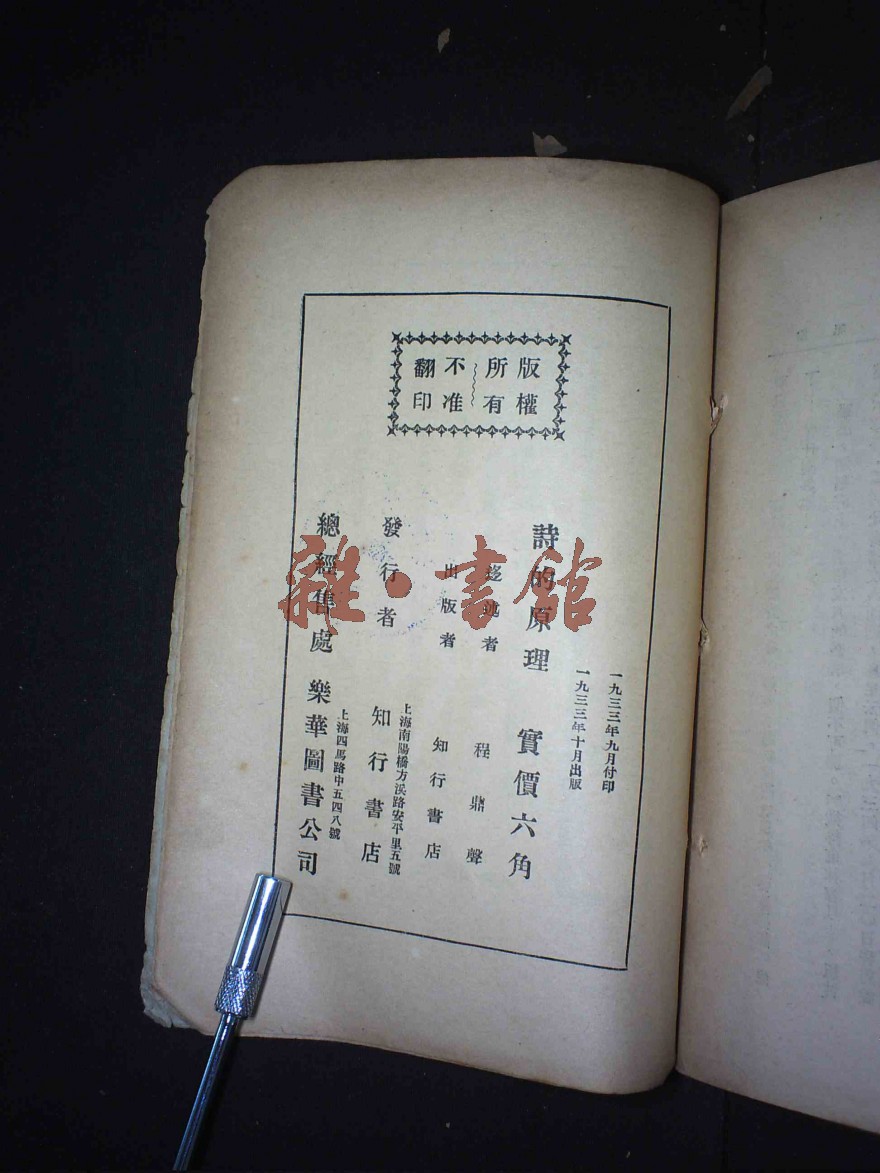 版權
所有
不准
翻印
一九三三年九月付印
一九三三年十月出版
詩的原理 實價六角
迻述者 程鼎聲
出版者 知行書店
上海南陽橋方浜路安平里五號
發行者 知行書店
上海四馬路中五四八號
總經售處 樂華圖書公司
雜·書館